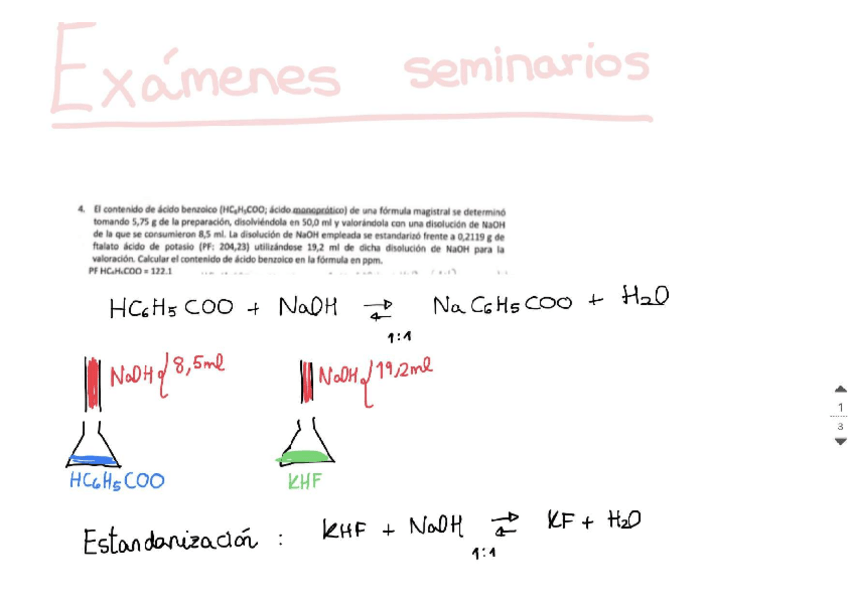 Exámenes seminarios
4. El contenido de ácido benzoico (HC₆H₅COO; ácido monoprótico) de una fórmula magistral se determinó
tomando 5,75 g de la preparación, disolviéndola en 50,0 ml y valorándola con una disolución de NaOH
de la que se consumieron 8,5 ml. La disolución de NaOH empleada se estandarizó frente a 0,2119 g de
ftalato ácido de potasio (PF: 204,23) utilizándose 19,2 ml de dicha disolución de NaOH para la
valoración. Calcular el contenido de ácido benzoico en la fórmula en ppm.
PF HC₆H₅COO = 122.1
HC₆H₅COO + NaOH ⇄ NaC₆H₅COO + H₂O
1:1
NaOH 8,5ml NaOH 19,2ml
HC₆H₅COO KHF
Estandarización : KHF + NaOH ⇄ KF + H₂O
1:1
1
3